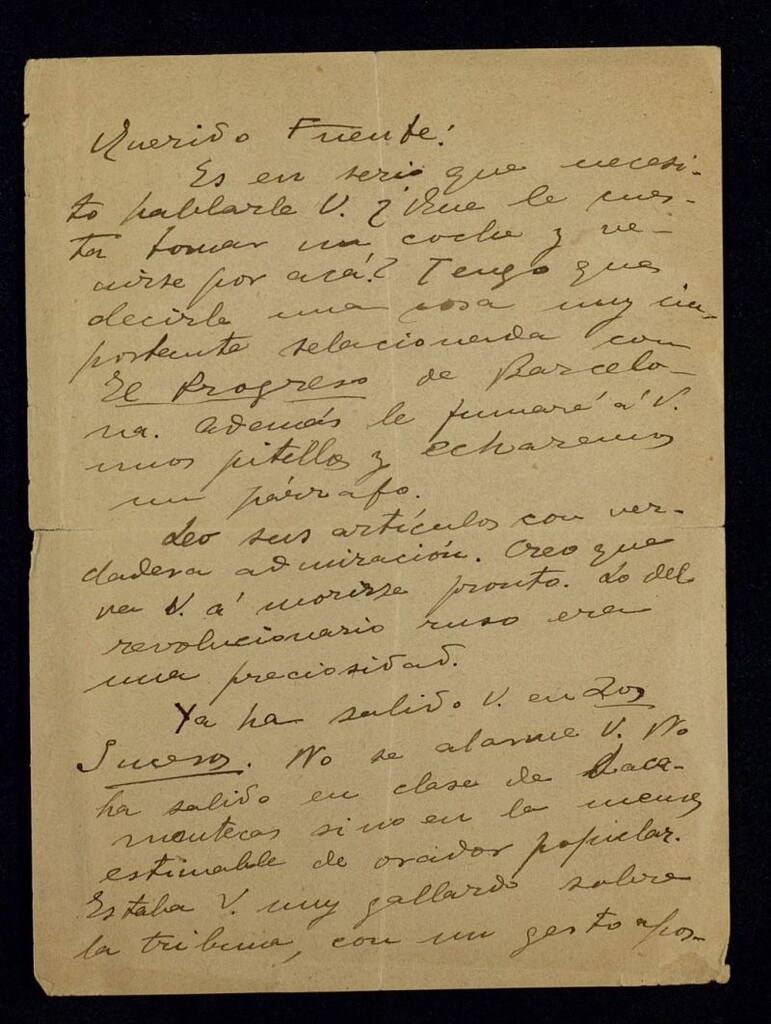 Querido Fuente:
Es en serio que necesi-
to hablarle V. ¿Que le cues-
ta tomar un coche y ve-
nirse por acá? Tengo que
decirle una cosa muy im-
portante relacionada con
El Progreso de Barcelo-
na. Además le fumaré á V.
unos pitillos y echaremos
un párrafo.
Leo sus artículos con ver-
dadera admiración. Creo que
va V. á morirse pronto. Lo del
revolucionario ruso era
una preciosidad.
Ya ha salido V. en Los
Sucesos. No se alarme V. No
ha salido en clase de Saca-
mantecas sino en la menos
estimable de orador popular.
Estaba V. muy gallardo sobre
la tribuna, con un gesto apos-